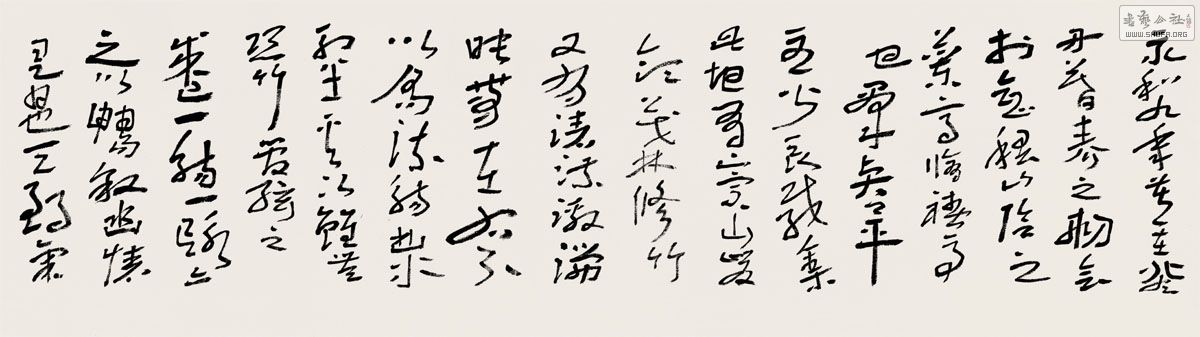 永和九年歲在癸
丑暮春之初會
於會稽山陰之
蘭亭脩禊事
也羣賢畢
至少長咸集
此地有崇山峻
領茂林脩竹
又有清流激湍
映帶左右引
以為流觴曲水
列坐其次雖無
絲竹管弦之
盛一觴一詠亦
足以暢叙幽情
是日也天朗氣
書藝公社
WWW.SHUFA.ORG